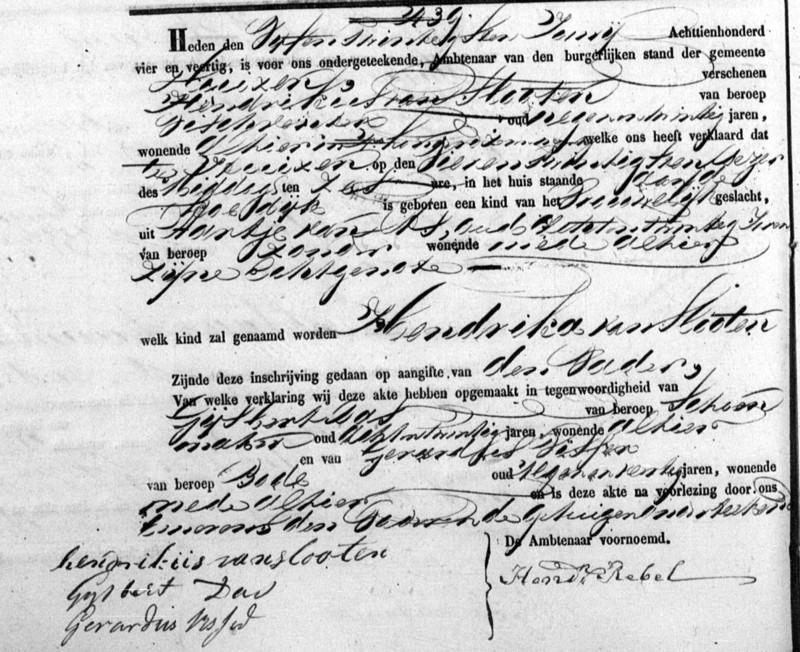 Heden den Agtentwintigsten Junij Achttienhonderd
vier en veertig, is voor ons ondergeteekende, Ambtenaar van den burgerlijken stand der gemeente
Huizen verschenen
Hendrikus van Slooten van beroep
oud negenentwintig jaren,
wonende alhier welke ons heeft verklaard dat
te Huizen op den Zevenentwintigsten dezer
des middags ten Zes ure, in het huis staande aan de
is geboren een kind van het Vrouwelijk geslacht,
uit Aartje van As, oud Agtentwintig Jaren
van beroep Zonder wonende mede alhier
zijne Echtgenote
welk kind zal genaamd worden Hendrika van Slooten
Zijnde deze inschrijving gedaan op aangifte van den Vader,
Van welke verklaring wij deze akte hebben opgemaakt in tegenwoordigheid van
Gijsbert van beroep Schoen
maker oud Agtentwintig jaren, wonende alhier
en van Gerardus Visser
van beroep Bode oud jaren, wonende
mede alhier en is deze akte na voorlezing door ons
den en de Getuigen onderteekend
De Ambtenaar voornoemd.
hendrikus van slooten
Gijsbert
Gerardus Visser
Hendk. Rebel